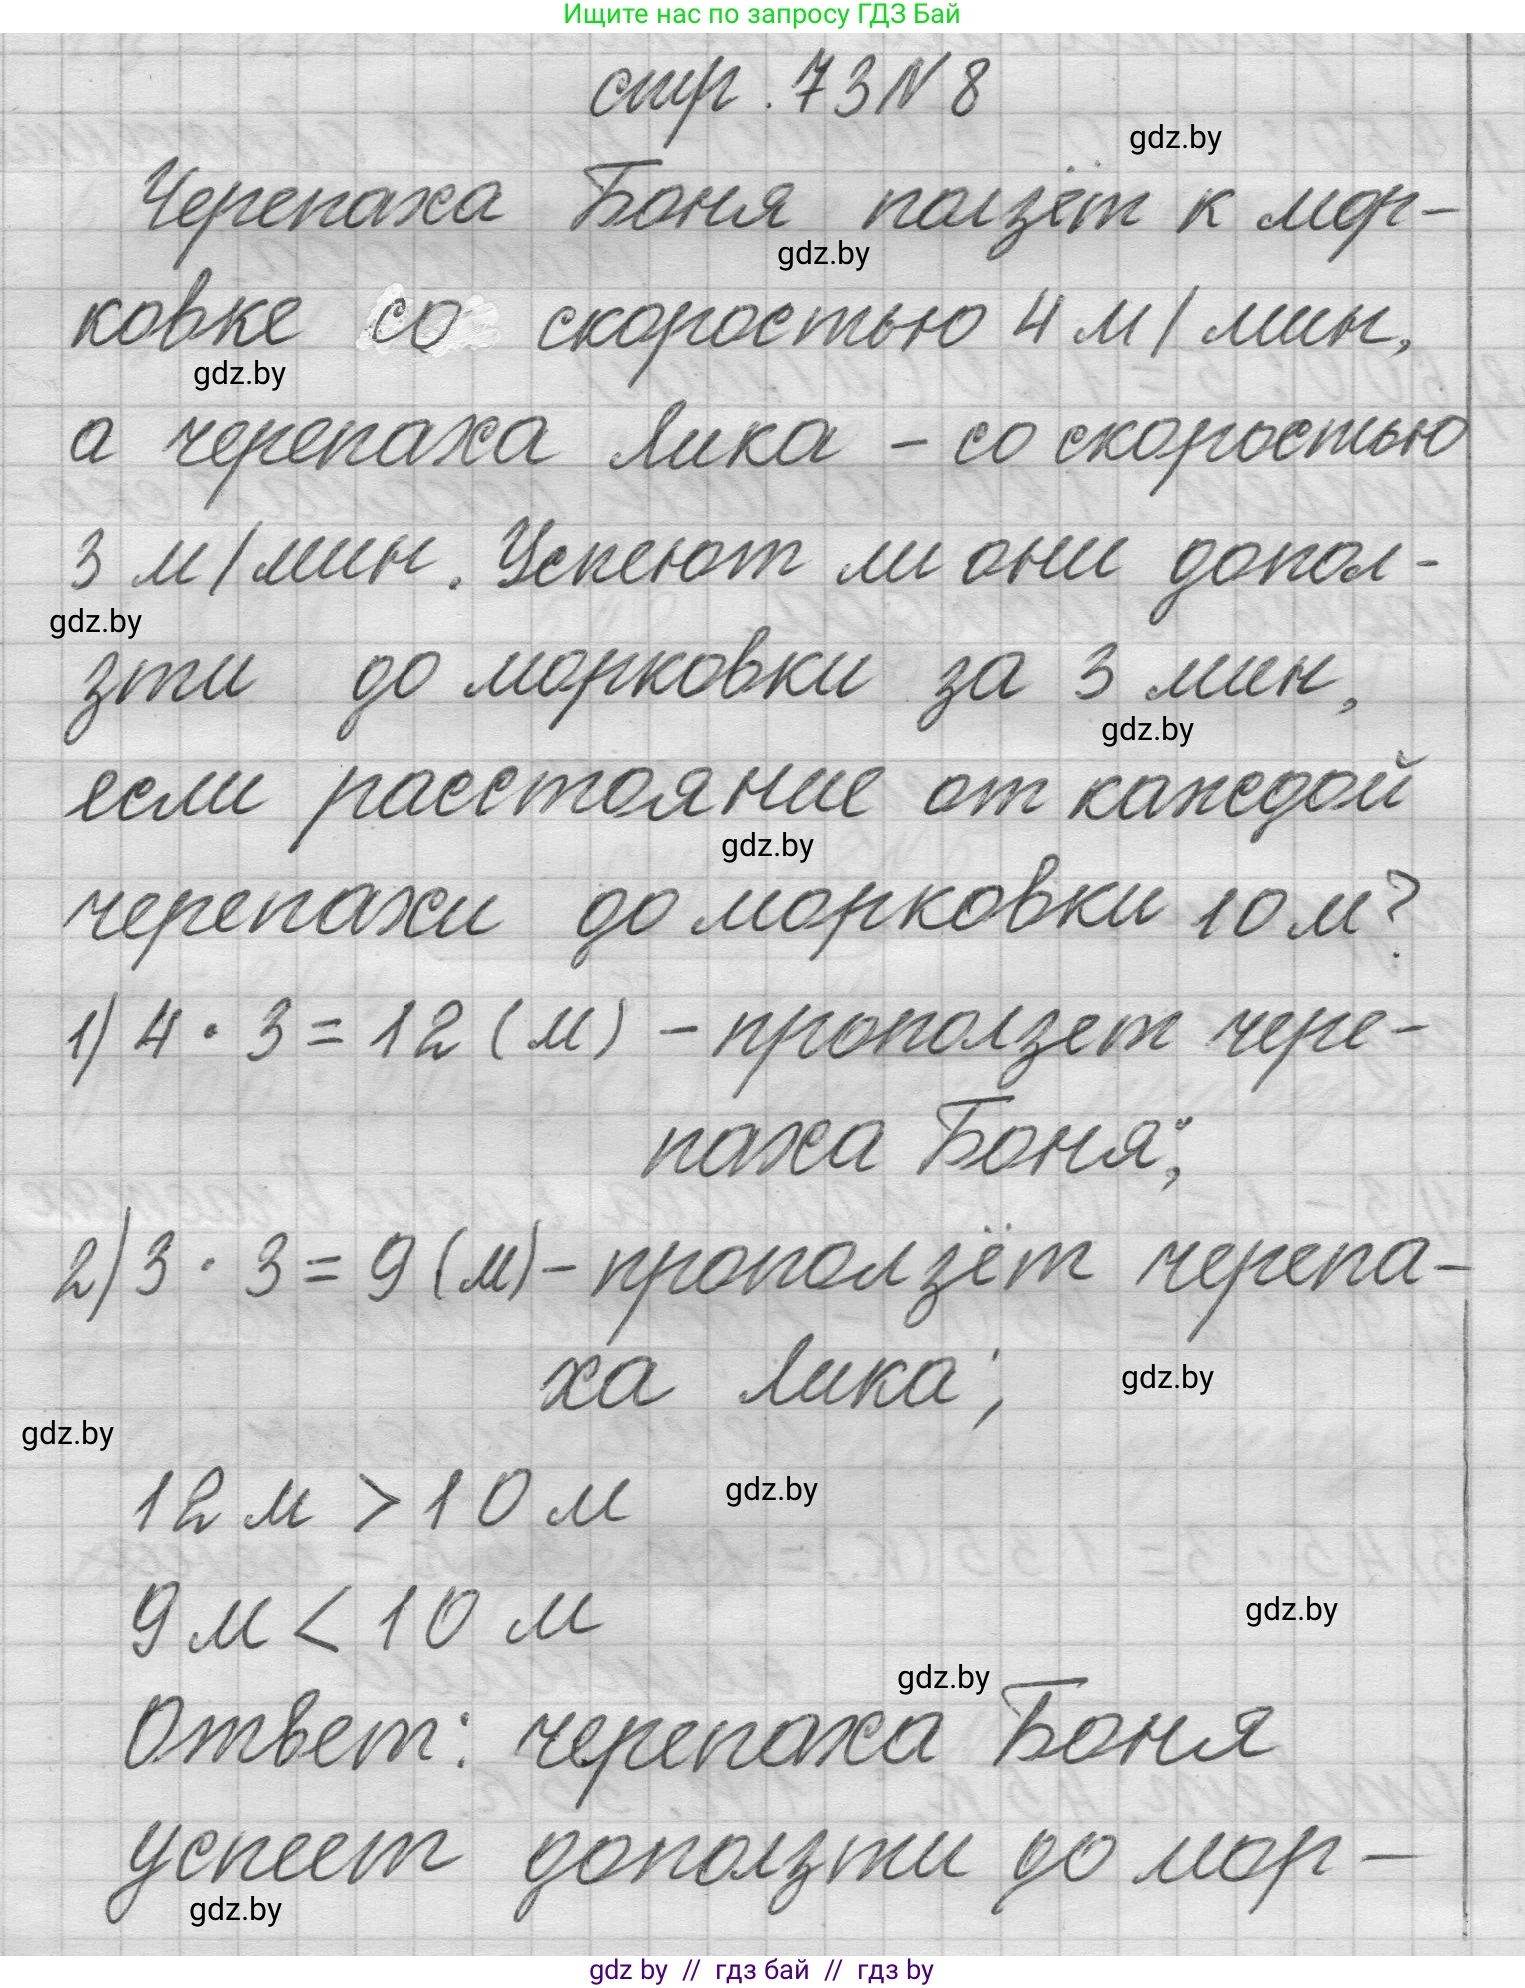 Ищите нас по запросу ГДЗ Бай
стр. 73 N 8
gdz.by
Черепаха Боня ползёт к мор-
gdz.by
ковке со скоростью 4 м/мин,
gdz.by
а черепаха Лика - со скоростью
3 м/мин. Успеют ли они допол-
gdz.by
зти до морковки за 3 мин,
gdz.by
если расстояние от каждой
gdz.by
черепахи до морковки 10 м?
1) 4 · 3 = 12 (м) - проползет чере-
паха Боня;
2) 3 · 3 = 9 (м) - проползёт черепа-
ха Лика;
gdz.by
gdz.by
12 м > 10 м
gdz.by
9 м < 10 м
gdz.by
gdz.by
Ответ: черепаха Боня
успеет доползти до мор-
gdz.by
gdz by // гдз бай // гдз by